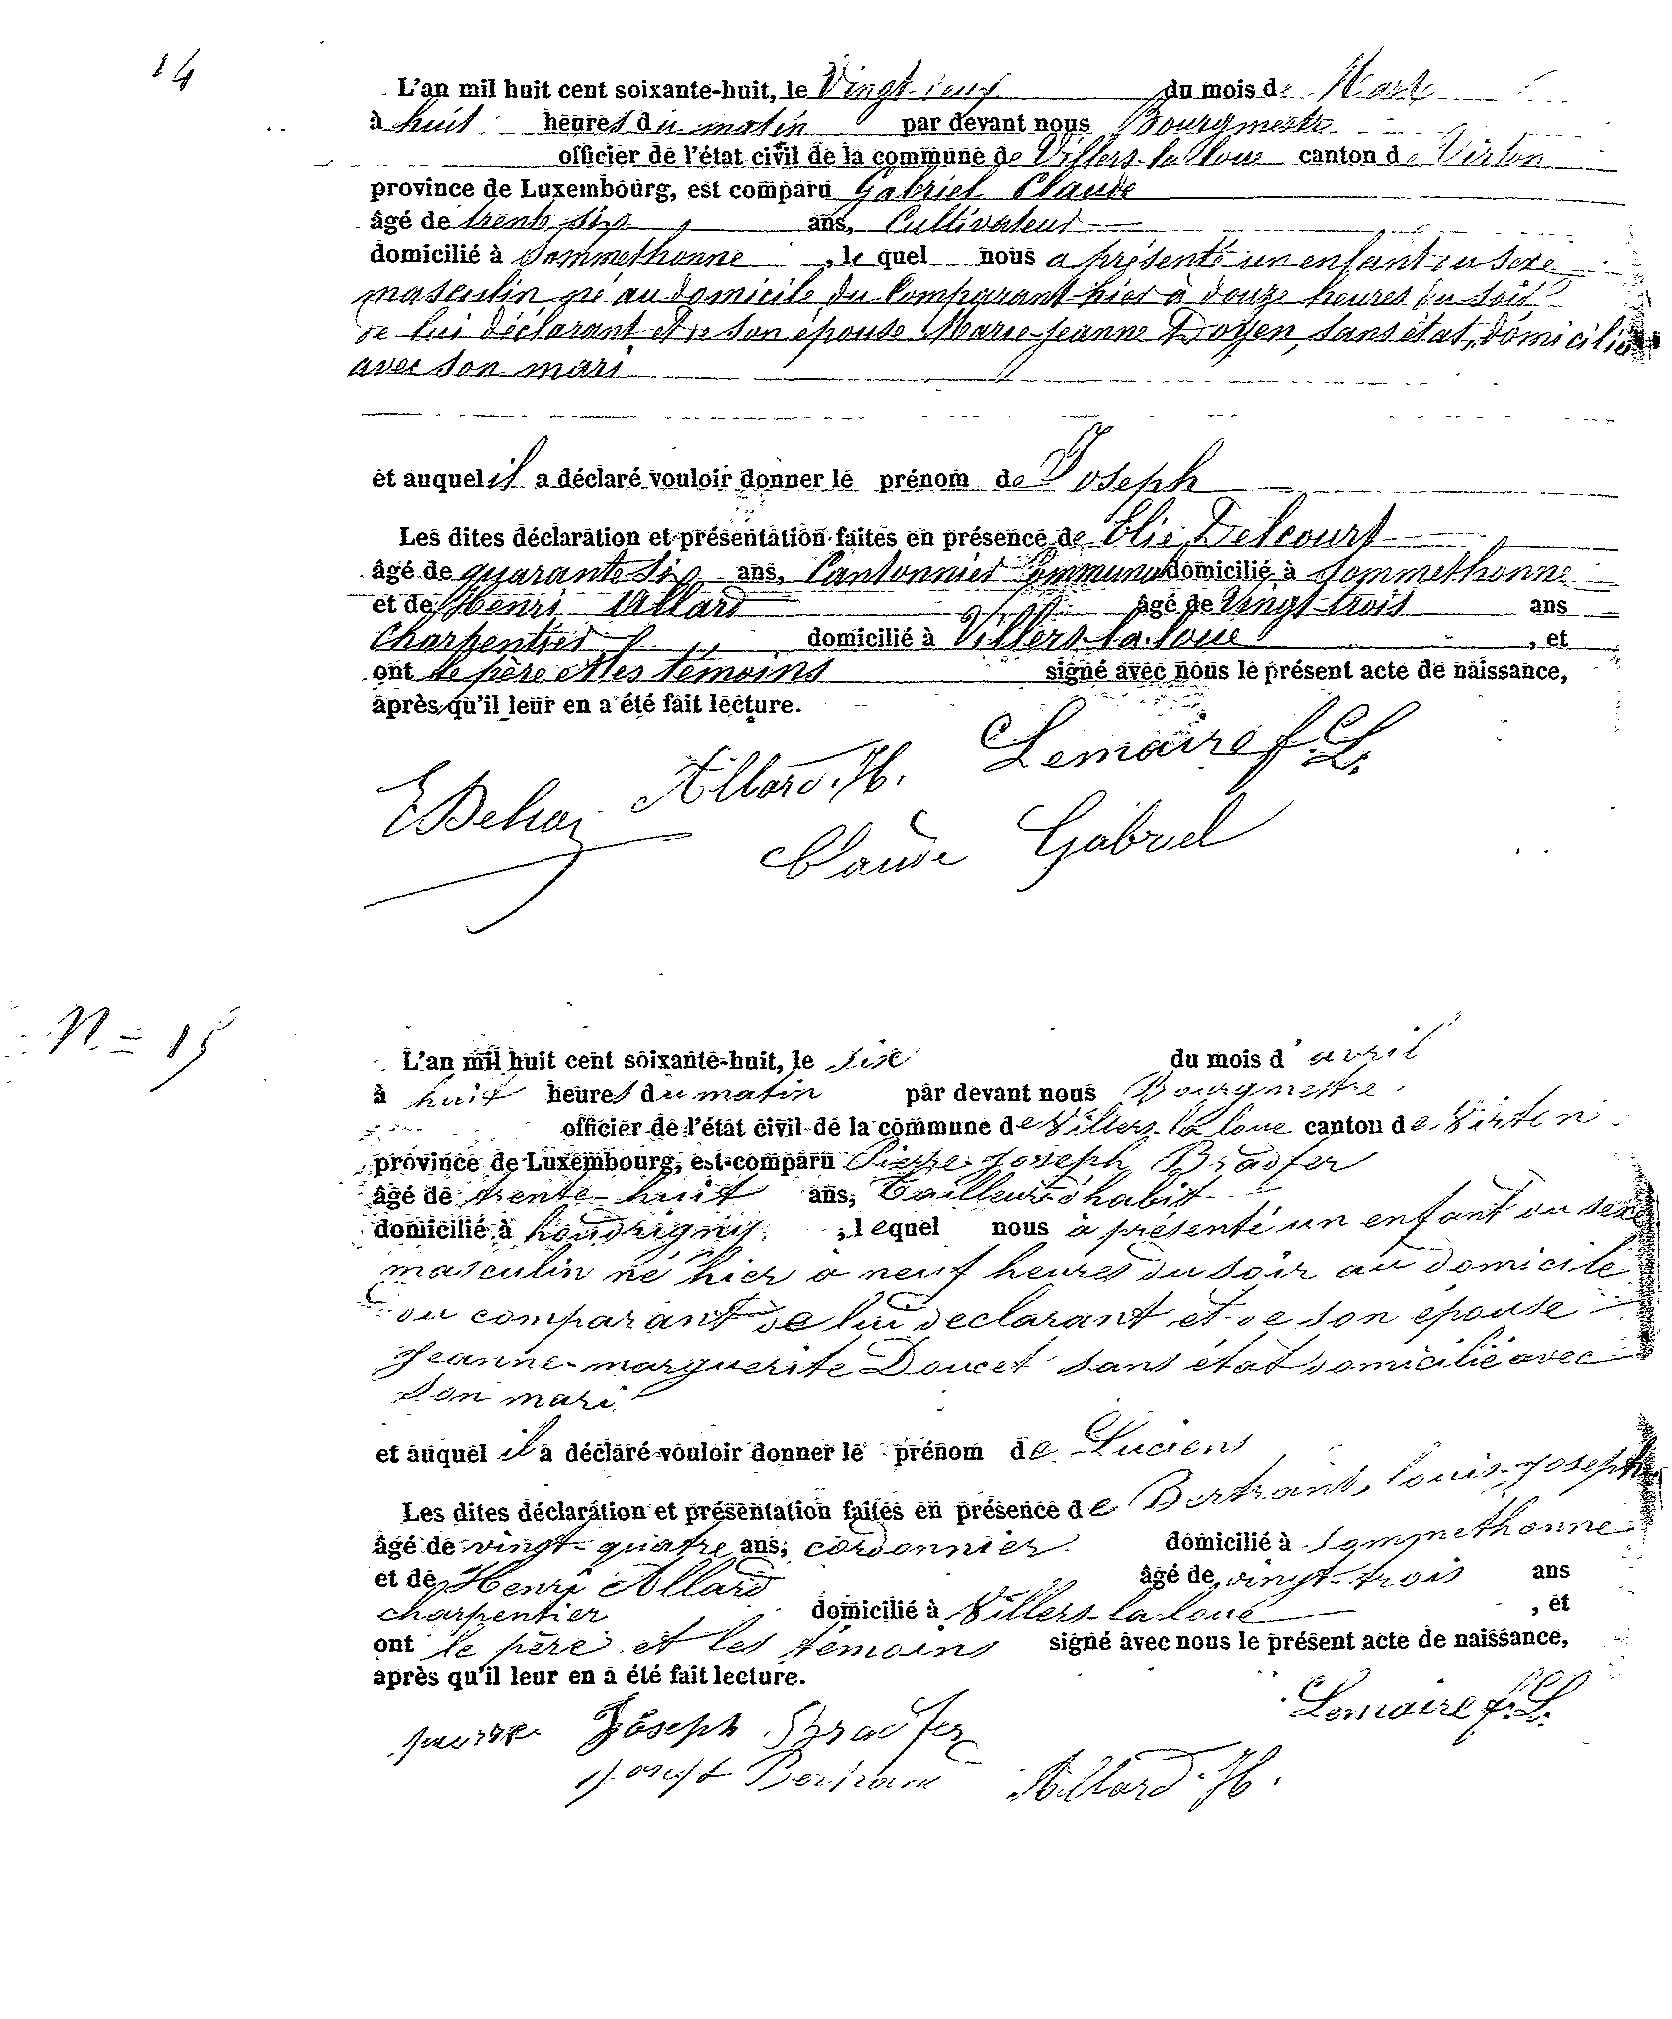 14
L'an mil huit cent soixante-huit, le Vingt neuf du mois de Mars
à huit heures du matin par devant nous Bourgmestre
officier de l'état civil de la commune de Villers-la-loue canton de Virton
province de Luxembourg, est comparu Gabriel Claude
âgé de trente six ans, Cultivateur
domicilié à Sommethonne, lequel nous a présenté un enfant du sexe
masculin né au domicile du Comparant hier à douze heures du soir
de lui déclarant et de son épouse Marie-Jeanne Doyen, sans état, domicilié
avec son mari
et auquel il a déclaré vouloir donner le prénom de Joseph
Les dites déclaration et présentation faites en présence de Elie Delcourt
âgé de quarante six ans, Cantonnier Communal domicilié à Sommethonne
et de Henri Allard âgé de Vingt trois ans
Charpentier domicilié à Villers-la-loue, et
ont le père et les témoins signé avec nous le présent acte de naissance,
après qu'il leur en a été fait lecture.
Lemaire f. L.
Allard. H.
Claude Gabriel
N = 15
L'an mil huit cent soixante-huit, le six du mois d'avril
à huit heures du matin par devant nous Bourgmestre
officier de l'état civil de la commune de Villers-la loue canton de Virton
province de Luxembourg, est comparu Pierre-Joseph Bradfer
âgé de trente-huit ans, Tailleur d'habit
domicilié à houdrigny, lequel nous à présenté un enfant du sexe
masculin né hier à neuf heures du soir au domicile
du comparant de lui declarant et de son épouse
Jeanne-marguerite Doucet sans état domicilié avec
son mari
et auquel il a déclaré vouloir donner le prénom de Luciens
Les dites déclaration et présentation faites en présence de Bertrand, louis-Joseph
âgé de vingt-quatre ans, cordonnier domicilié à Sommethonne
et de Henri Allard âgé de vingt-trois ans
charpentier domicilié à Villers-la loue, et
ont le père et les témoins signé avec nous le présent acte de naissance,
après qu'il leur en a été fait lecture.
Lemaire f. L.
pierre Joseph Bradfer
Joseph Bertrand Allard. H.